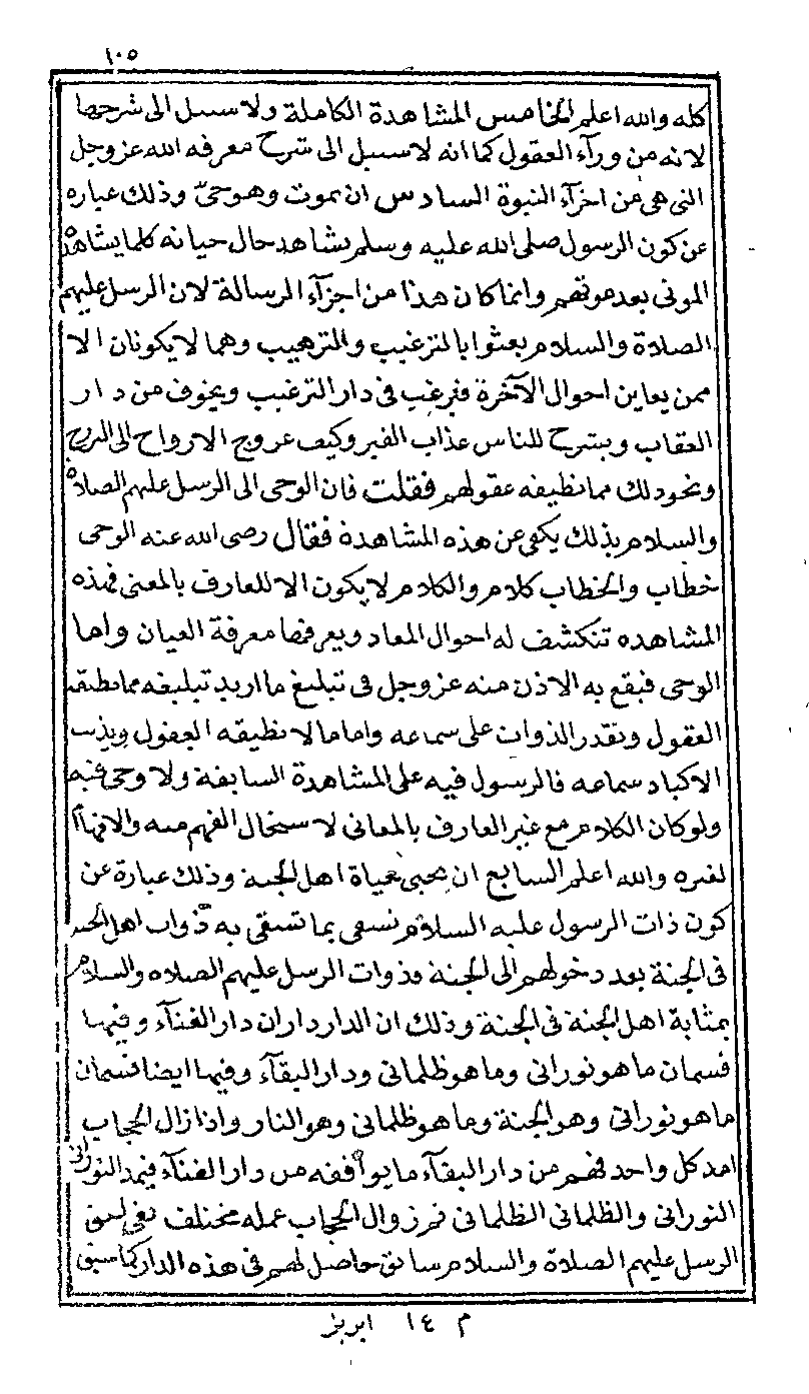 ١٠٥
كله والله اعلم الخامس المشاهدة الكاملة ولا سبيل الى شرحها
لانه من ورآء العقول كما انه لا سبيل الى شرح معرفه الله عز وجل
التى هى من اجزآء النبوة السادس ان يموت وهو حىّ وذلك عباره
عن كون الرسول صلى الله عليه وسلم يشاهد حال حياته كلما يشاهده
الموتى بعد موتهم وانما كان هذا من اجزآء الرسالة لان الرسل عليهم
الصلاة والسلام بعثوا بالترغيب والترهيب وهما لا يكونان الا
ممن يعاين احوال الآخرة فيرغب فى دار الترغيب ويخوف من دار
العقاب ويشرح للناس عذاب القبر وكيف عروج الارواح الى البرزخ
ونحو ذلك مما تطيقه عقولهم فقلت فان الوحى الى الرسل عليهم الصلاة
والسلام بذلك يكفى عن هذه المشاهدة فقال رضى الله عنه الوحى
خطاب والخطاب كلام والكلام لا يكون الا للعارف بالمعنى فهذه
المشاهده تنكشف له احوال المعاد ويعرفها معرفة العيان واما
الوحى فيقع به الاذن منه عز وجل فى تبليغ ما اريد تبليغه مما تطيقه
العقول وتقدر الذوات على سماعه واما ما لا تطيقه العقول ويذيب
الاكباد سماعه فالرسول فيه على المشاهدة السابقة ولا وحى فيه
ولو كان الكلام مع غير العارف بالمعانى لاستحال الفهم منه والافهام
لغيره والله اعلم السابع ان يحيى حياة اهل الجنة وذلك عبارة عن
كون ذات الرسول عليه السلام تسقى بما تسقى به ذوات اهل الجنة
فى الجنة بعد دخولهم الى الجنة فذوات الرسل عليهم الصلاه والسلام
بمثابة اهل الجنة فى الجنة وذلك ان الدار داران دار الفنآء وفيها
قسمان ما هو نورانى وما هو ظلمانى ودار البقآء وفيها ايضا قسمان
ما هو نورانى وهو الجنة وما هو ظلمانى وهو النار واذا زال الحجاب
امد كل واحد فهم من دار البقآء ما يوافقه من دار الفنآء فيمد النورانى
النورانى والظلمانى الظلمانى ثم زوال الحجاب عمله مختلف ففى حق
الرسل عليهم الصلاة والسلام سابق حاصل لهم فى هذه الدار كما سبق
م ١٤ ابريز